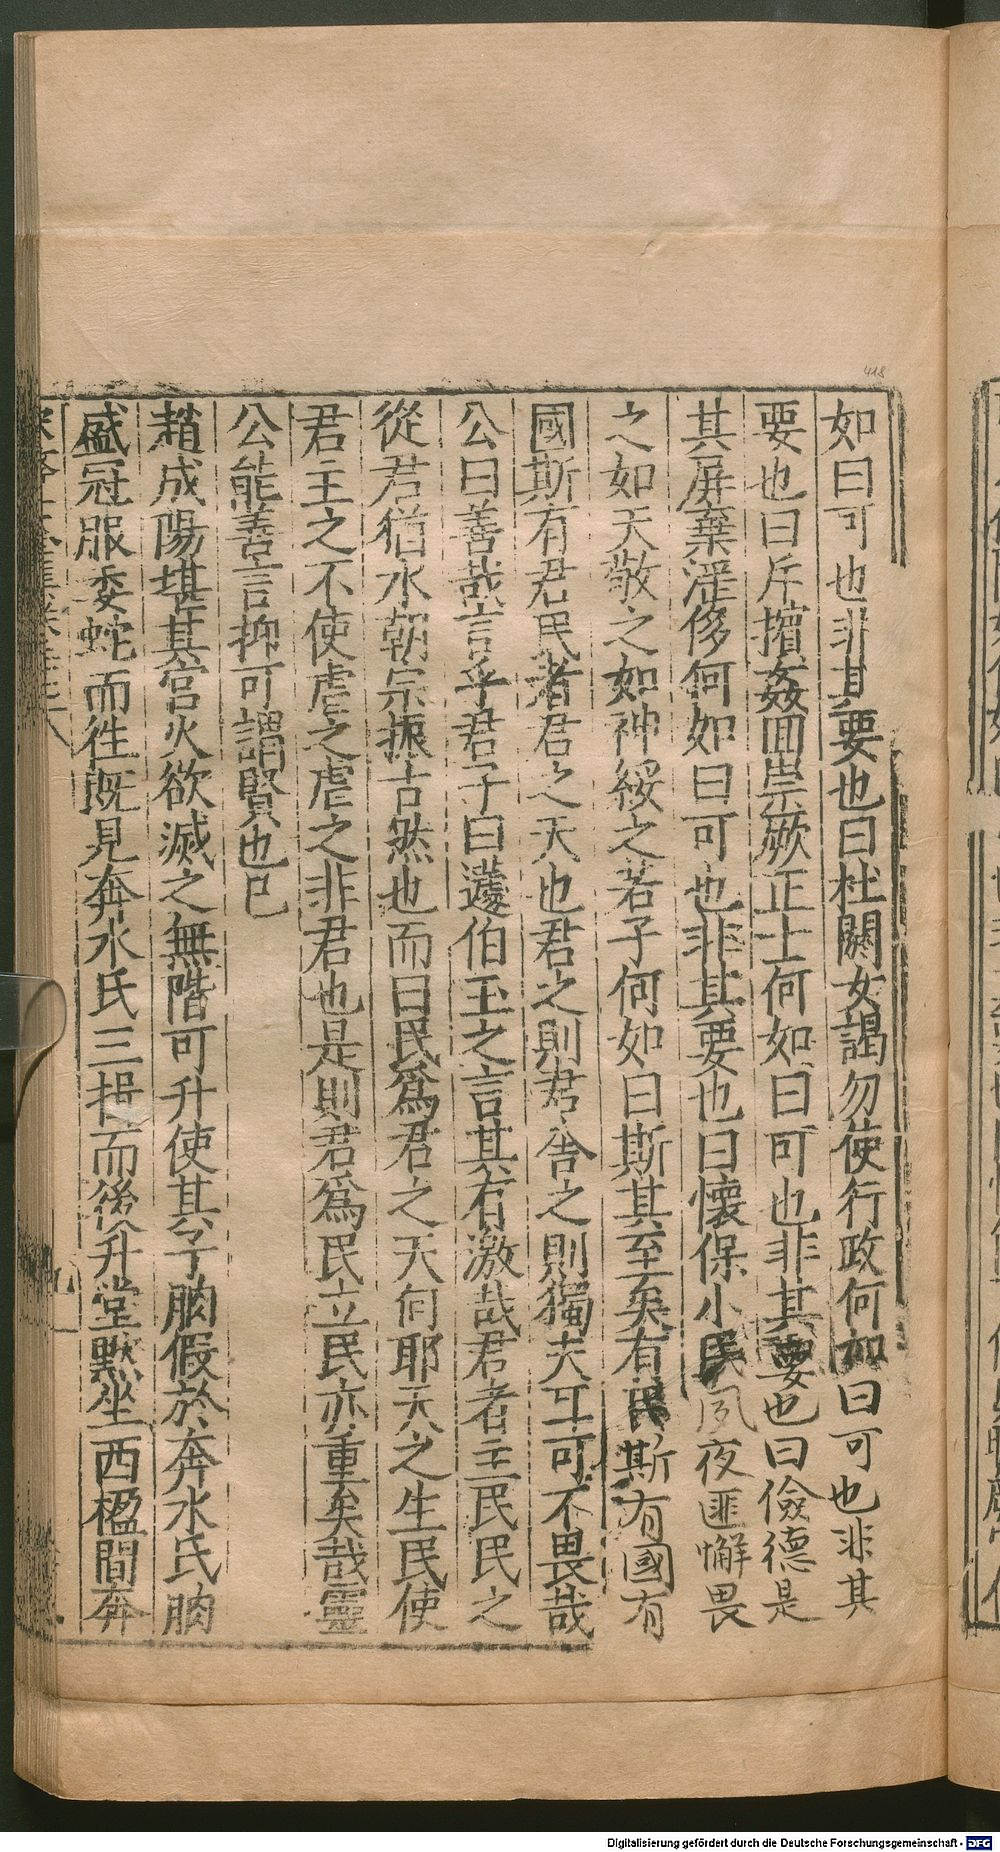 如曰可也非其要也曰杜閼女謁勿使行政何如曰可也非其
要也曰斥擯姦回崇厥正士何如曰可也非其要也曰儉德是
其屏棄淫侈何如曰可也非其要也曰懷保小民夙夜匪懈畏
之如天敬之如神綏之若子何如曰斯其至矣有民斯有國有
國斯有君民者君之天也君之則君舍之則獨夫耳可不畏哉
公曰善哉言乎君子曰蘧伯玉之言其有激哉君者主民民之
從君猶水朝宗振古然也而曰民爲君之天何耶天之生民使
君主之不使虐之虐之非君也是則君爲民立民亦重矣哉靈
公能善言抑可謂賢也已
趙成陽堪其宮火欲滅之無階可升使其子朒假於奔水氏朒
盛冠服委蛇而往既見奔水氏三揖而後升堂默坐西楹間奔
九
418
Digitalisierung gefördert durch die Deutsche Forschungsgemeinschaft - DFG